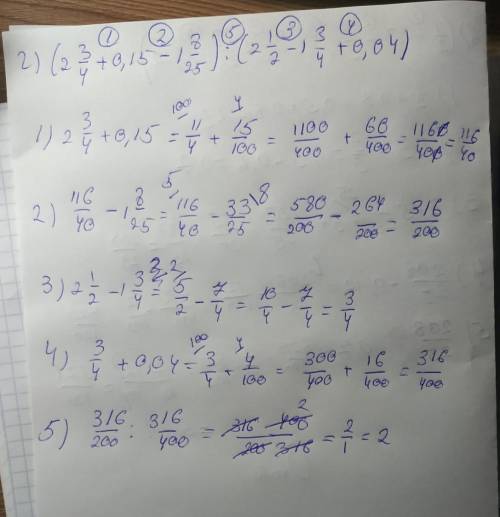 ① ② ⑤ ③ ④
2) (2 3/4 + 0,15 − 1 8/25) : (2 1/2 − 1 3/4 + 0,04)
100 4
1) 2 3/4 + 0,15 = 11/4 + 15/100 = 1100/400 + 60/400 = 1160/400 = 116/40
5 8
2) 116/40 − 1 8/25 = 116/40 − 33/25 = 580/200 − 264/200 = 316/200
2
3) 2 1/2 − 1 3/4 = 5/2 − 7/4 = 10/4 − 7/4 = 3/4
100 4
4) 3/4 + 0,04 = 3/4 + 4/100 = 300/400 + 16/400 = 316/400
2
5) 316/200 : 316/400 = 316 · 400/200 · 316 = 2/1 = 2